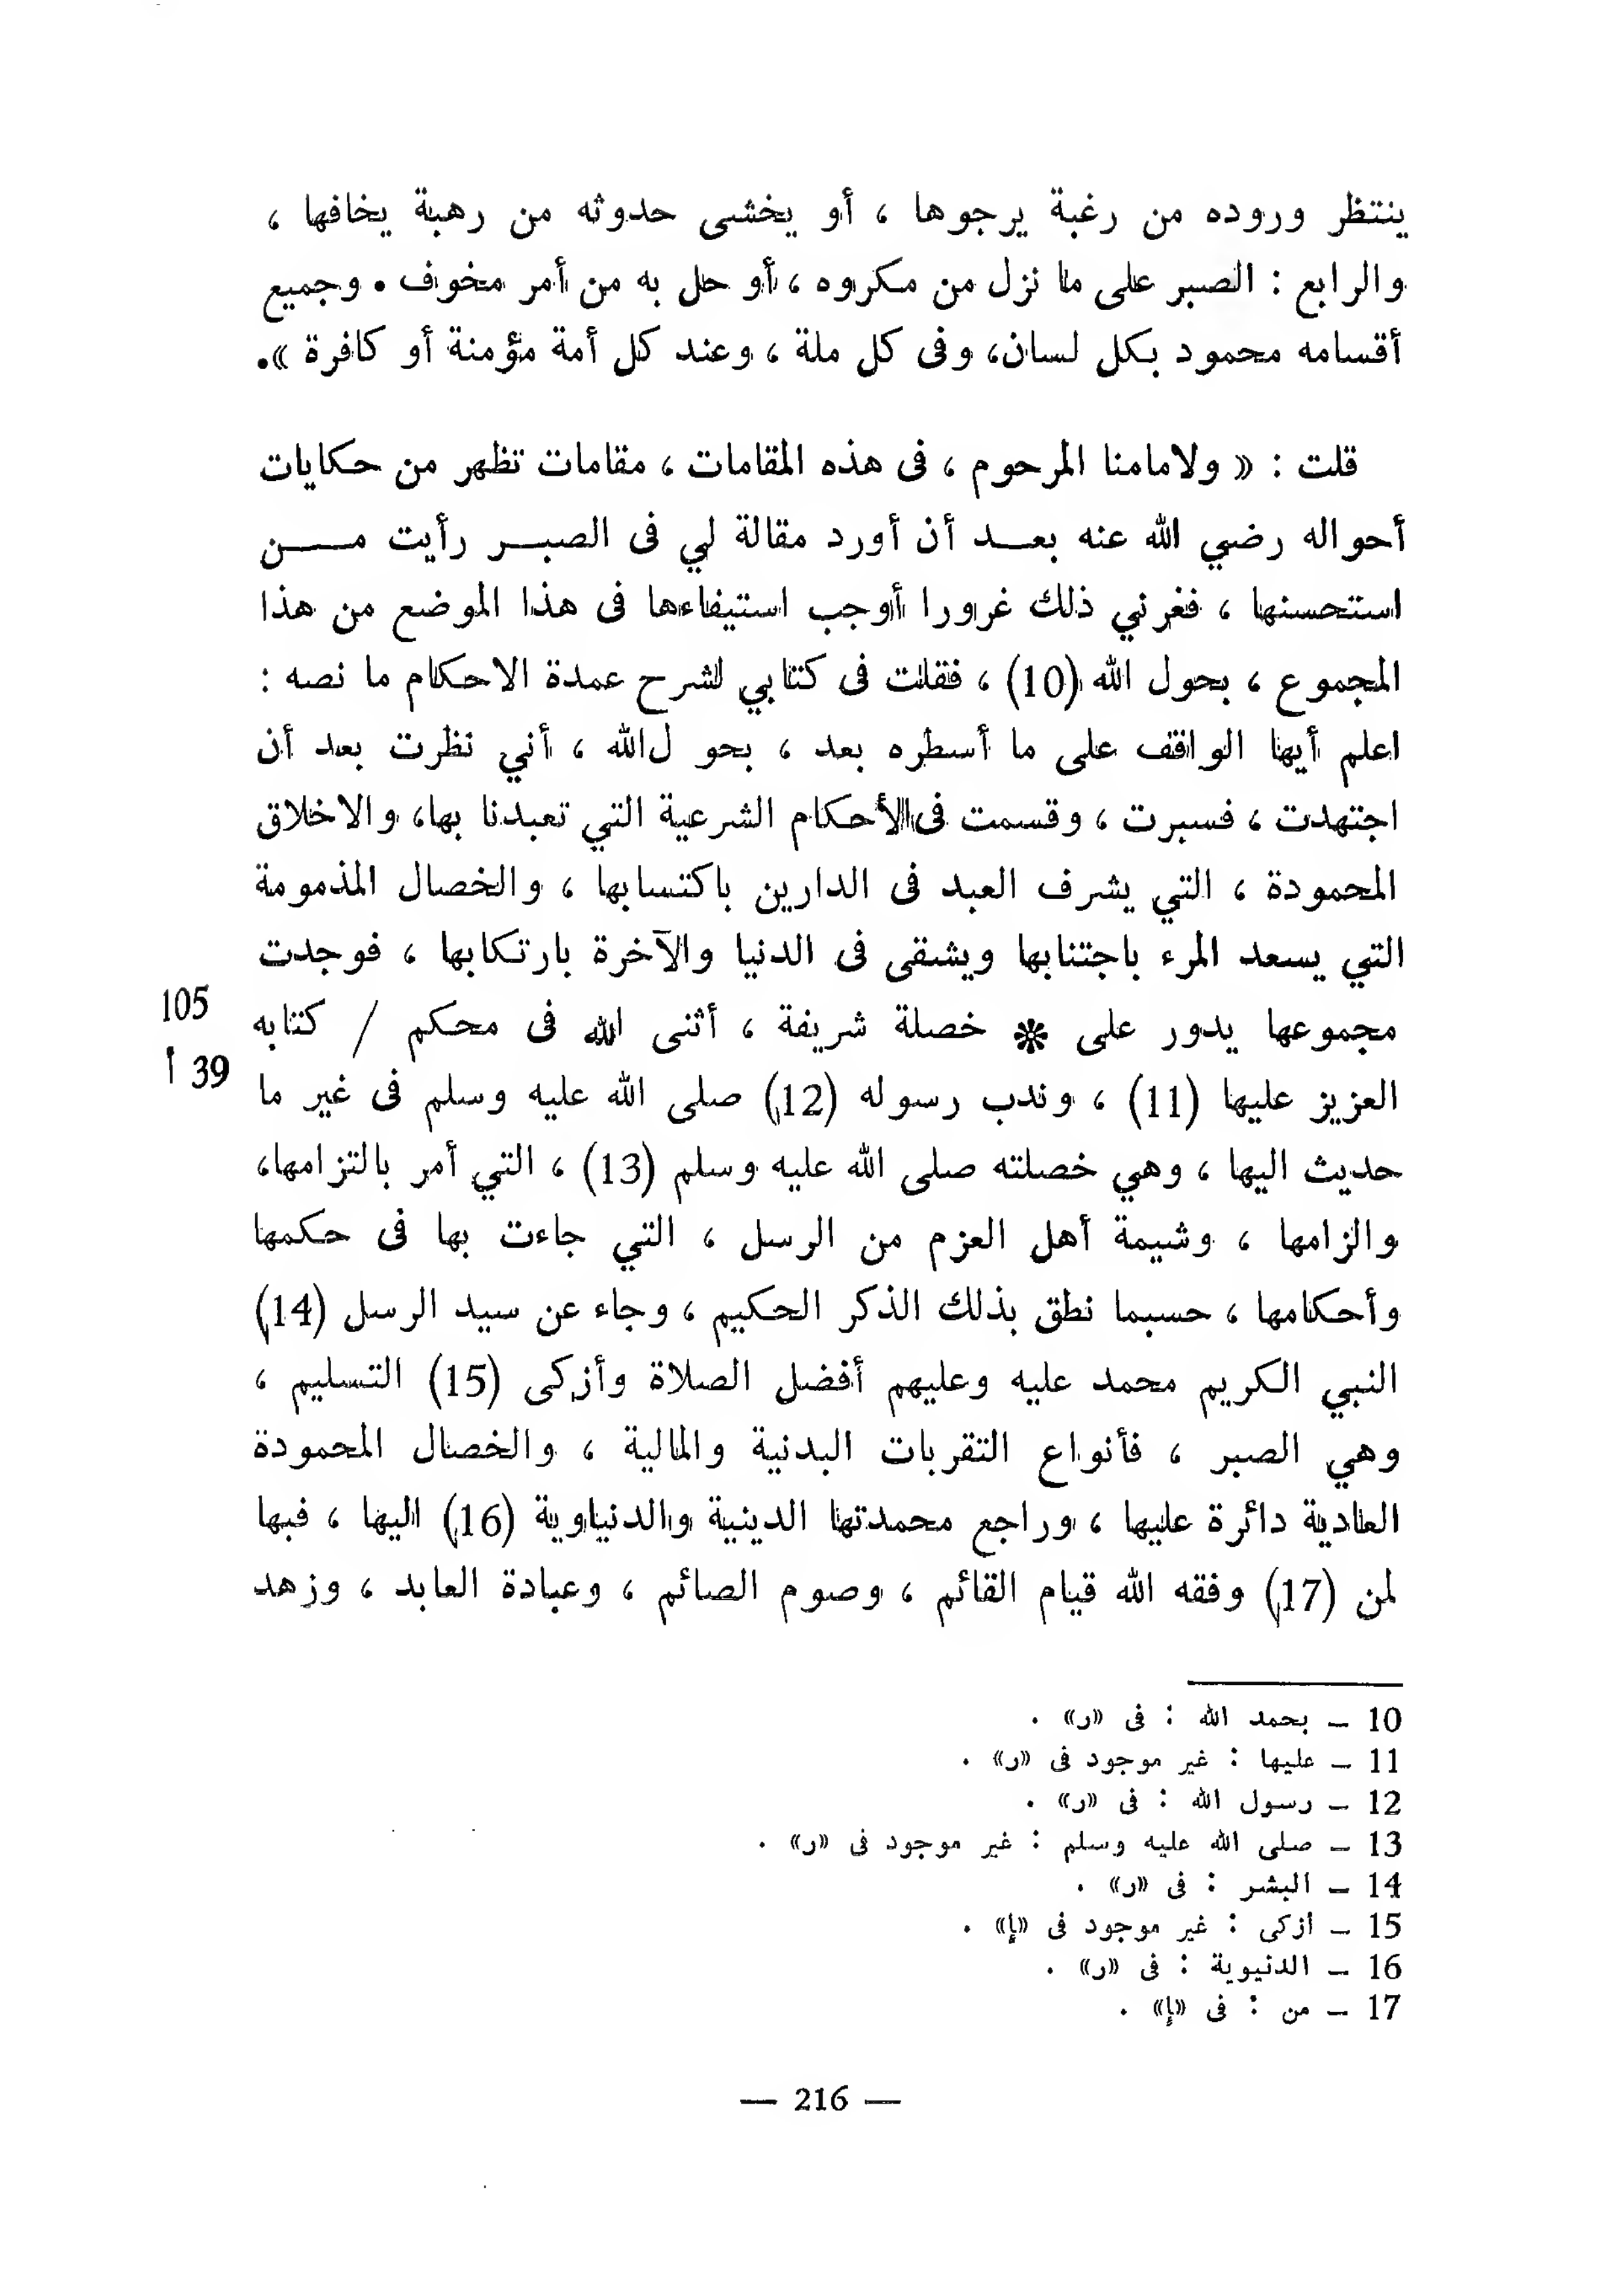 ينتظر وروده من رغبة يرجوها ، أو يخشى حدوثه من رهبة يخافها ،
والرابع : الصبر على ما نزل من مكروه ، أو حل به من أمر مخوف . وجميع
أقسامه محمود بكل لسان، وفى كل ملة ، وعند كل أمة مؤمنة أو كافرة » .
قلت : « ولامامنا المرحوم ، فى هذه المقامات ، مقامات تظهر من حكايات
أحواله رضي الله عنه بعد أن أورد مقالة لي فى الصبر رأيت من
استحسنها ، فغرني ذلك غرورا أوجب استيفاءها فى هذا الموضع من هذا
المجموع ، بحول الله (10) ، فقلت فى كتابي لشرح عمدة الاحكام ما نصه :
اعلم أيها الواقف على ما أسطره بعد ، بحو ل الله ، أني نظرت بعد أن
اجتهدت ، فسبرت ، وقسمت فى الأحكام الشرعية التي تعبدنا بها، والاخلاق
المحمودة ، التي يشرف العبد فى الدارين باكتسابها ، والخصال المذمومة
التي يسعد المرء باجتنابها ويشقى فى الدنيا والآخرة بارتكابها ، فوجدت
105
مجموعها يدور على * خصلة شريفة ، أثنى الله فى محكم / كتابه
39 أ
العزيز عليها (11) ، وندب رسوله (12) صلى الله عليه وسلم فى غير ما
حديث اليها ، وهي خصلته صلى الله عليه وسلم (13) ، التي أمر بالتزامها،
والزامها ، وشيمة أهل العزم من الرسل ، التي جاءت بها فى حكمها
وأحكامها ، حسبما نطق بذلك الذكر الحكيم ، وجاء عن سيد الرسل (14)
النبي الكريم محمد عليه وعليهم أفضل الصلاة وأزكى (15) التسليم ،
وهي الصبر ، فأنواع التقربات البدنية والمالية ، والخصال المحمودة
العادية دائرة عليها ، وراجع محمدتها الدينية والدنياوية (16) اليها ، فبها
لمن (17) وفقه الله قيام القائم ، وصوم الصائم ، وعبادة العابد ، وزهد
10 — بحمد الله : فى «ر» .
11 — عليها : غير موجود فى «ر» .
12 — رسول الله : فى «ر» .
13 — صلى الله عليه وسلم : غير موجود فى «ر» .
14 — البشر : فى «ر» .
15 — أزكى : غير موجود فى «إ» .
16 — الدنيوية : فى «ر» .
17 — من : فى «إ» .
— 216 —